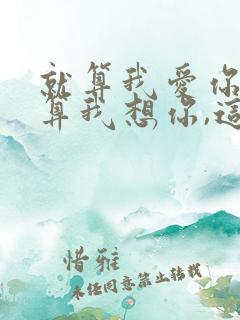 就算我愛你
算我想你,這
惜雅
未经同意禁止转载